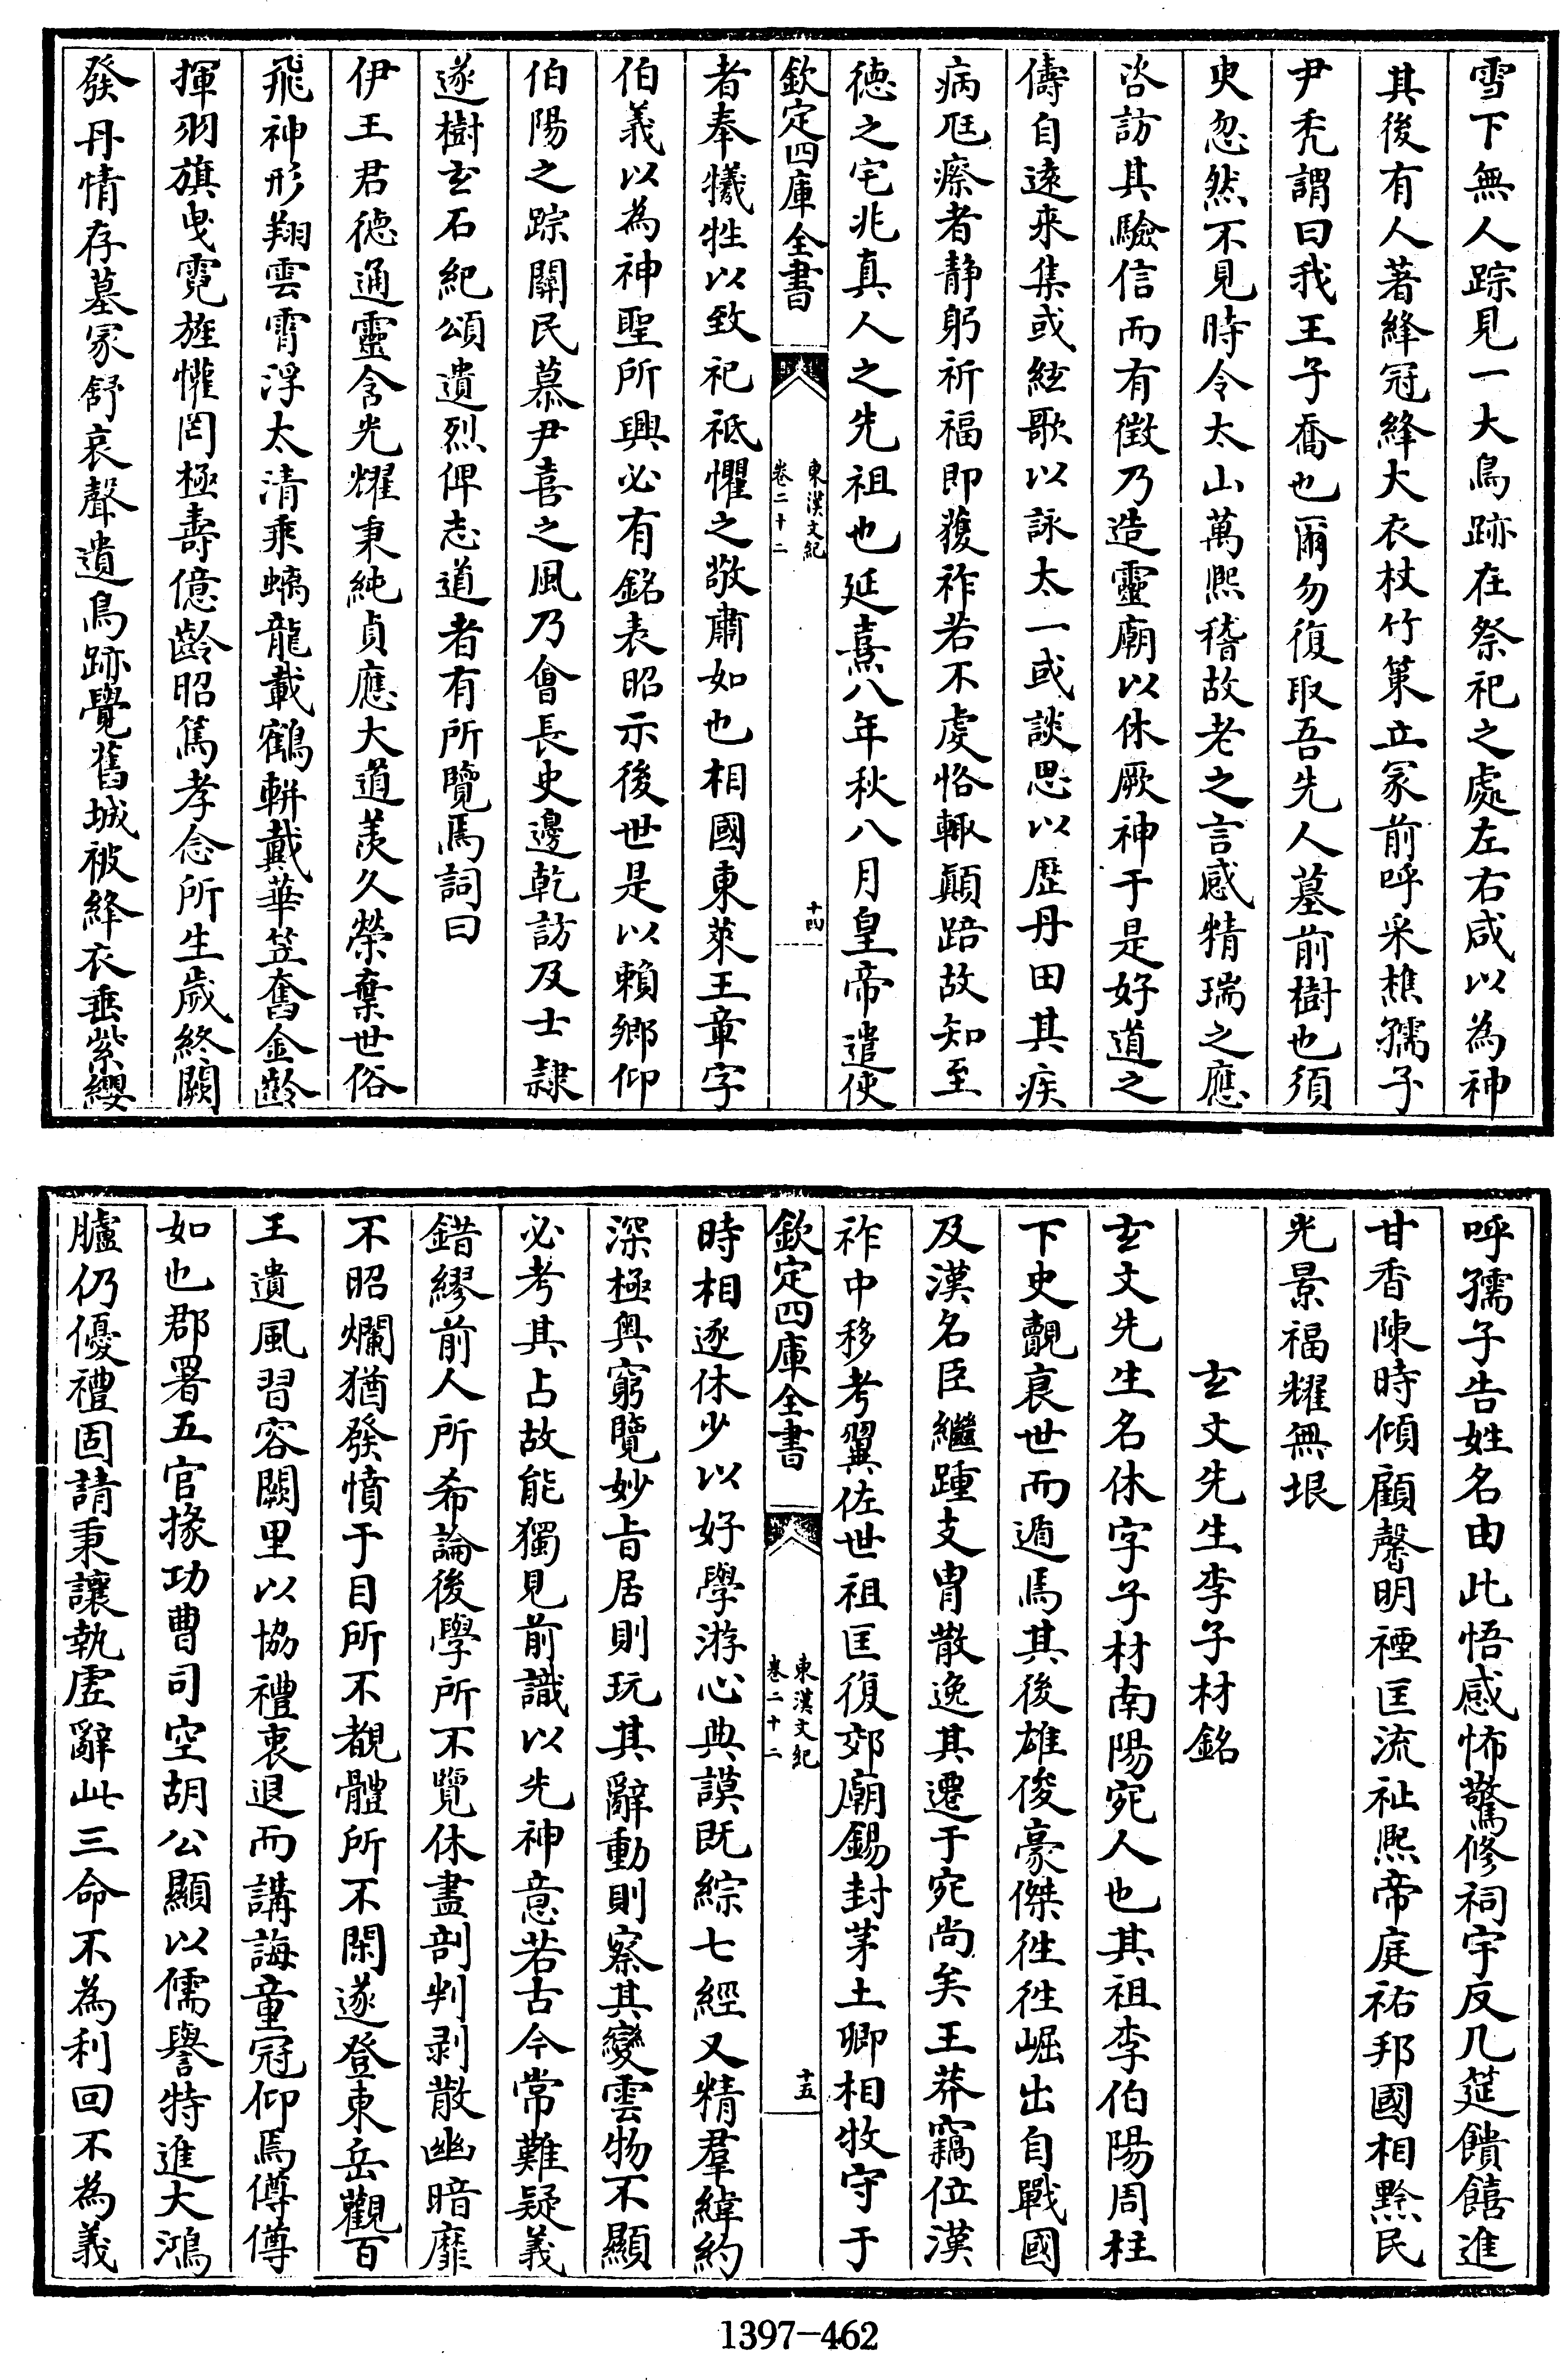 雪下無人踪見一大鳥跡在祭祀之處左右咸以為神
其後有人著絳冠絳大衣杖竹策立冢前呼采樵孺子
尹禿謂曰我王子喬也爾勿復取吾先人墓前樹也須
臾忽然不見時令太山萬熙稽故老之言感精瑞之應
咨訪其驗信而有徵乃造靈廟以休厥神于是好道之
儔自遠來集或絃歌以詠太一或談思以歷丹田其疾
病尫瘵者靜躬祈福即獲祚若不虔恪輙顛踣故知至
德之宅兆真人之先祖也延熹八年秋八月皇帝遣使
欽定四庫全書
東漢文紀
卷二十二
十四
者奉犧牲以致祀祗懼之敬肅如也相國東萊王章字
伯義以為神聖所興必有銘表昭示後世是以賴鄉仰
伯陽之踪關民慕尹喜之風乃會長史邊乾訪及士隸
遂樹玄石紀頌遺烈俾志道者有所覽焉詞曰
伊王君德通靈含光耀秉純貞應大道羨久榮棄世俗
飛神形翔雲霄浮太清乘螭龍載鶴軿戴華笠奮金齡
揮羽旗曳霓旌懽罔極壽億齡昭篤孝念所生歲終闕
發丹情存墓冢舒哀聲遺鳥跡覺舊城被絳衣垂紫纓
呼孺子告姓名由此悟感怖驚修祠宇反几筵饋饎進
甘香陳時傾顧馨明禋匡流祉熙帝庭祐邦國相黔民
光景福耀無垠
玄文先生李子材銘
玄文先生名休字子材南陽宛人也其祖李伯陽周柱
下史覿衰世而遁焉其後雄俊豪傑徃徃崛出自戰國
及漢名臣繼踵支胄散逸其遷于宛尚矣王莽竊位漢
祚中移考翼佐世祖匡復郊廟錫封茅土卿相牧守于
欽定四庫全書
東漢文紀
卷二十二
十五
時相逐休少以好學游心典謨既綜七經又精羣緯約
深極奧窮覽妙旨居則玩其辭動則察其變雲物不顯
必考其占故能獨見前識以先神意若古今常難疑義
錯繆前人所希論後學所不覽休盡剖判剥散幽暗靡
不昭爛猶發憤于目所不覩體所不閑遂登東岳觀百
王遺風習容闕里以協禮衷退而講誨童冠仰焉僔僔
如也郡署五官掾功曹司空胡公顯以儒譽特進大鴻
臚仍優禮固請秉讓執虛辭此三命不為利回不為義
1397-462